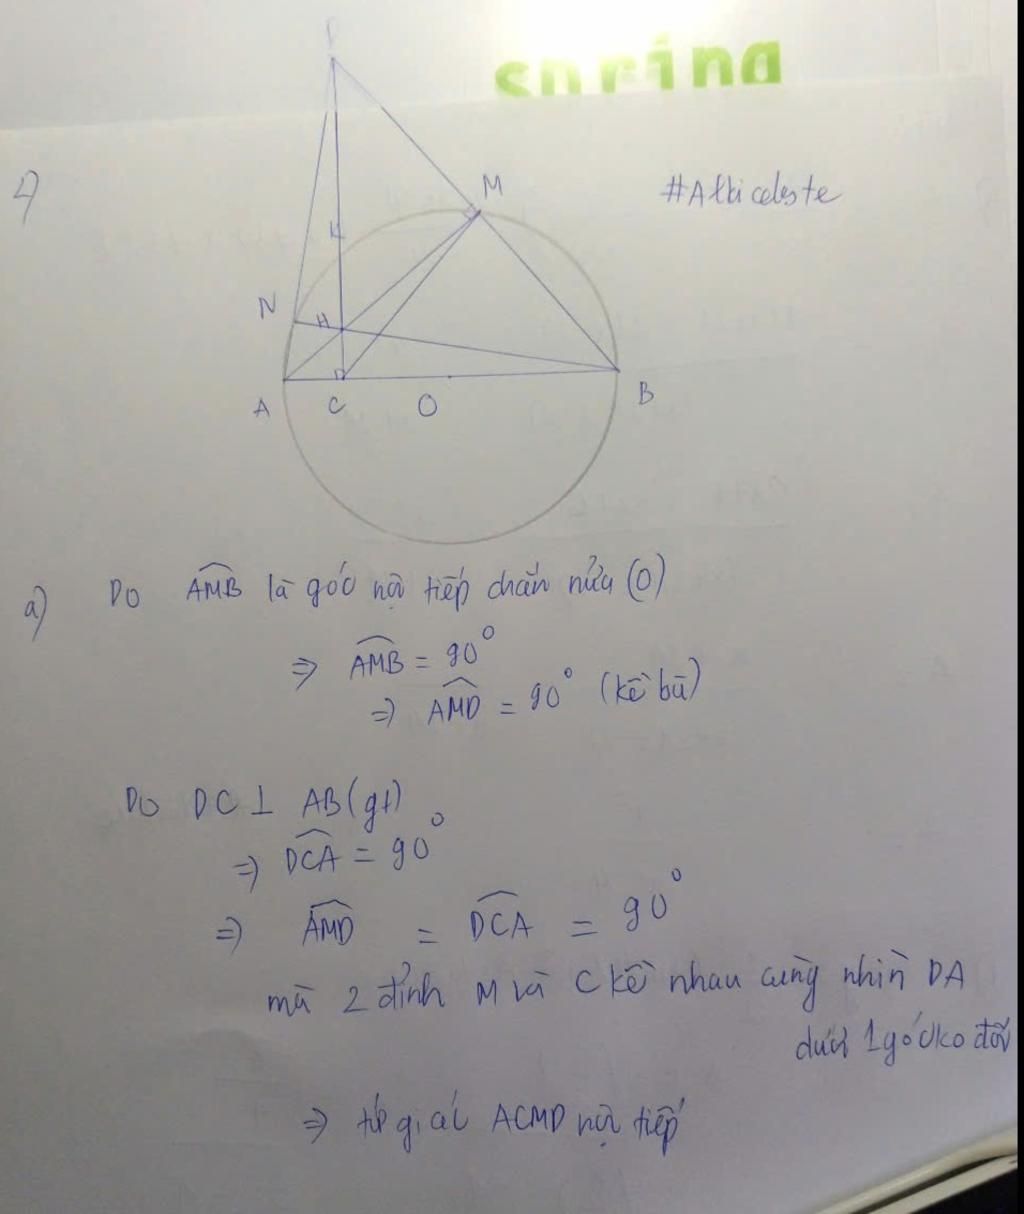 spring
D
4)
M
#Albiceleste
K
N
H
A
C
O
B
a) Do AMB là góc nội tiếp chắn nửa (O)
⇒ AMB = 90°
⇒ AMD = 90° (kề bù)
Do DC ⊥ AB (gt)
⇒ DCA = 90°
⇒ AMD = DCA = 90°
mà 2 đỉnh M và C kề nhau cùng nhìn DA
dưới 1 góc ko đổi
⇒ tứ giác ACMD nội tiếp